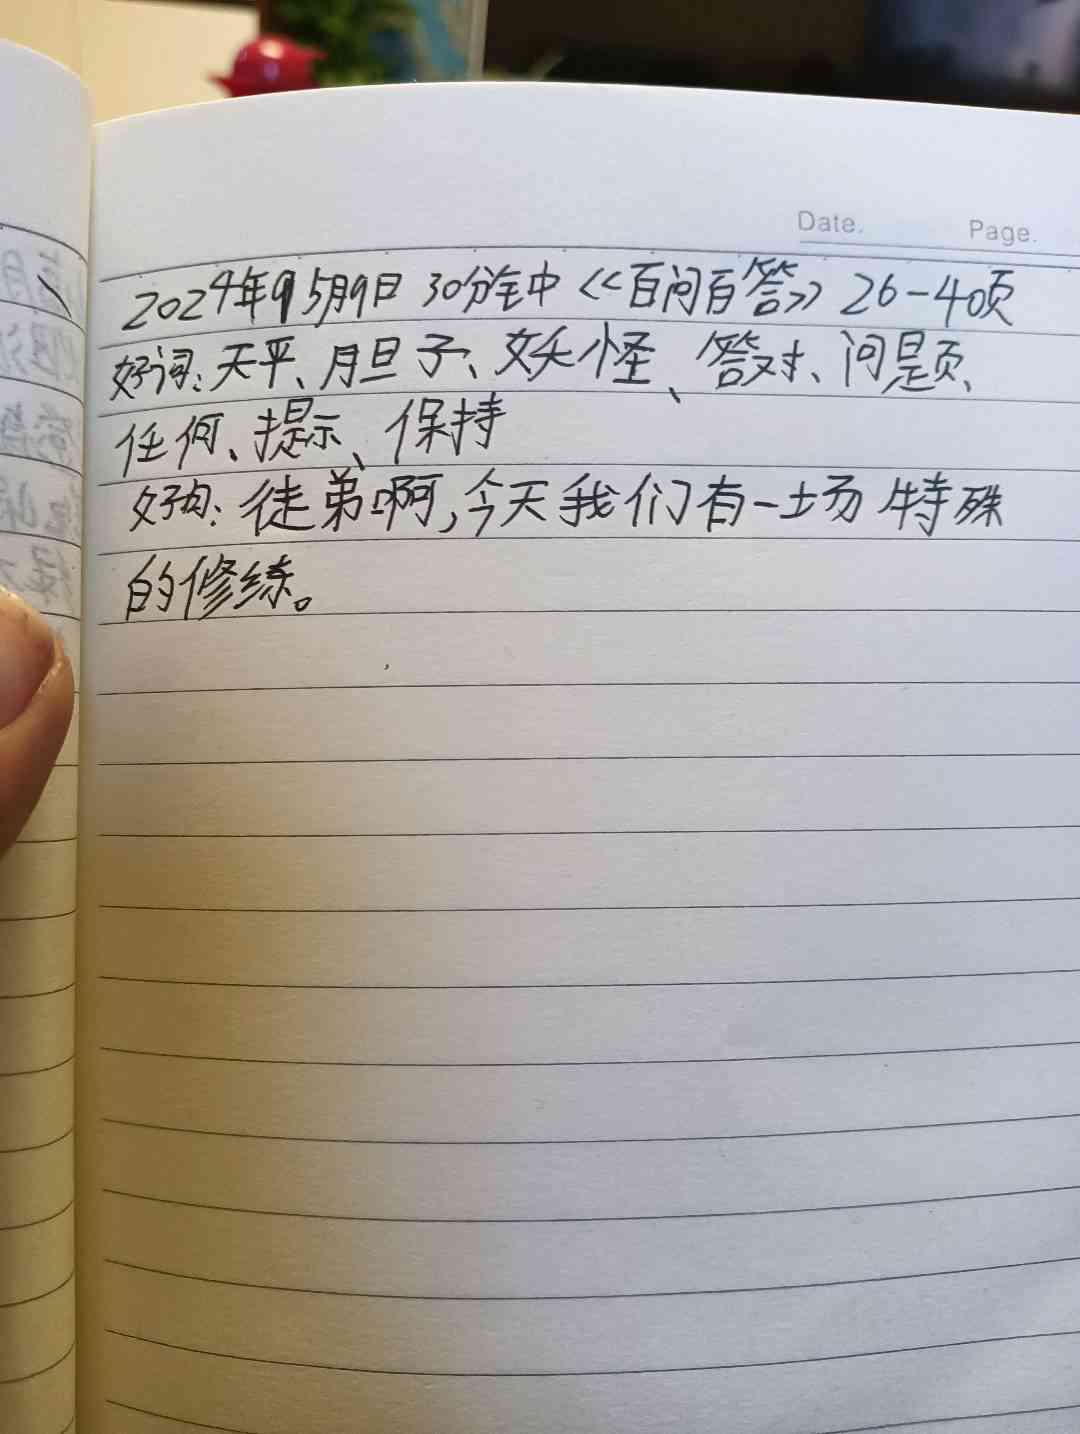 Date.
Page.
2024年9 5月9日 30分钟中《百问百答》26-40页
好词:天平、胆子、妖怪、答对、问题、
任何、提示、保持
好句:徒弟啊,今天我们有一场特殊
的修练。